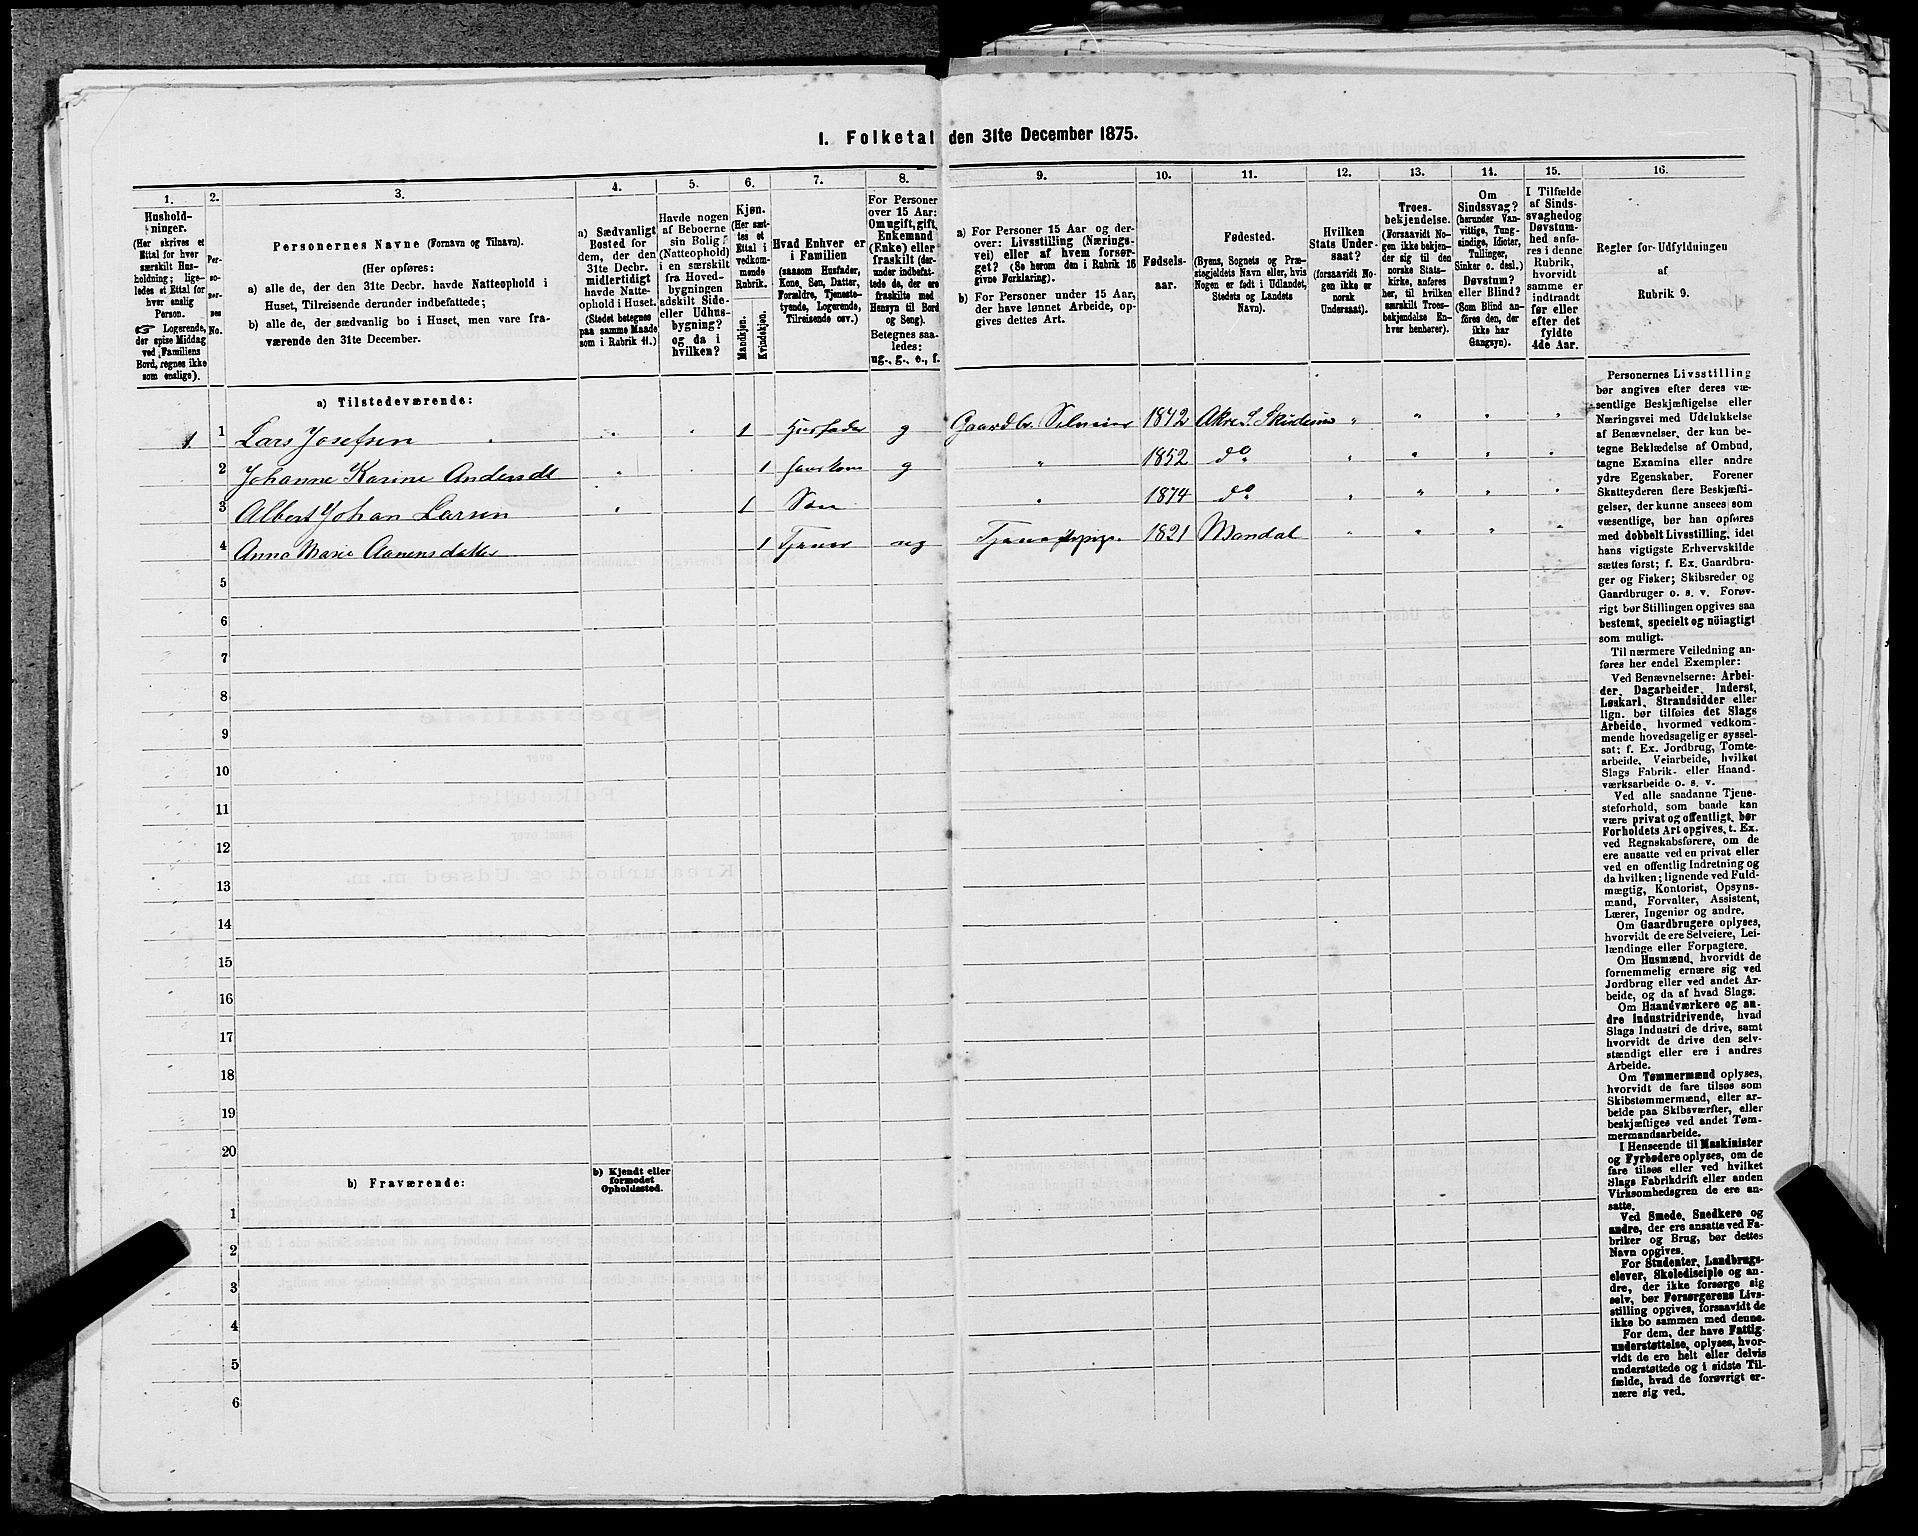 1. Folketal den 31te December 1875.
1. 2. 3. 4. 5. 6. 7. 8. 9. 10. 11. 12. 13. 14. 15. 16.
Hushold-
ninger.
(Her skrives et
Ettal for hver
særskilt Hus-
holdning; lige-
ledes et Ettal for
hver enslig
Person.
☞ Logerende,
der spise Middag
ved Familiens
Bord, regnes ikke
som enslige).
Per-
so-
ner-
nes
No.
Personernes Navne (Fornavn og Tilnavn).
(Her opføres:
a) alle de, der den 31te Decbr. havde Natteophold i
Huset, Tilreisende derunder indbefattede;
b) alle de, der sædvanlig bo i Huset, men vare fra-
værende den 31te December.
a) Sædvanligt
Bosted for
dem, der den
31te Decbr.
midlertidigt
havde Natte-
ophold i Huset.
(Stedet betegnes
paa samme Maade
som i Rubrik 11.)
Havde nogen
af Beboerne
sin Bolig
(Natteophold)
i en særskilt
fra Hoved-
bygningen
adskilt Side-
eller Udhus-
bygning?
og da i
hvilken?
Kjøn.
(Her sæt-
tes et
Ettal i
vedkom-
mende
Rubrik.
Mandkjøn.
Kvindekjøn.
Hvad Enhver er
i Familien
(saasom Husfader,
Kone, Søn, Datter,
Forældre, Tjeneste-
tyende, Logerende,
Tilreisende osv.)
For Personer
over 15 Aar:
Om ugift, gift,
Enkemand
(Enke) eller
fraskilt (der-
under indbefat-
tede de, der ere
fraskilte med
Hensyn til Bord
og Seng).
Betegnes saa-
ledes:
ug., g., e., f.
a) For Personer 15 Aar og der-
over: Livsstilling (Nærings-
vei) eller af hvem forsør-
get? (Se herom den i Rubrik 16
givne Forklaring).
b) For Personer under 15 Aar,
der have lønnet Arbeide, op-
gives dettes Art.
Fødsels-
aar.
Fødested.
(Byens, Sognets og Præ-
stegjeldets Navn eller, hvis
Nogen er født i Udlandet,
Stedets og Landets
Navn).
Hvilken
Stats Under-
saat?
(forsaavidt No-
gen ikke er
norsk
Undersaat).
Troes-
bekjendelse.
(Forsaavidt No-
gen ikke bekjen-
der sig til den
norske Stats-
kirke, anføres
her, til hvilken
særskilt Troes-
bekjendelse En-
hver henhører).
Om
Sindssvag?
(herunder Van-
vittige, Tung-
sindige, Idioter,
Tullinger,
Sinker o. desl.)
Døvstum?
eller Blind?
(Som Blind an-
føres den, der
ikke har
Gangsyn).
I Tilfælde
af Sinds-
svaghed og
Døvstum-
hed anfø-
res i denne
Rubrik,
hvorvidt
samme er
indtraadt
før eller
efter det
fyldte
4de Aar.
Regler for Udfyldningen
af
Rubrik 9.
a) Tilstedeværende:
1 1 Lars Josefsen 1 Husfader g Gaardbr. Selveier 1842 Akre S. " " " "
2 Johanne Karine Andersdt " 1 g " 1852 do " " " "
3 Albert Johan Larsen " 1 Søn " 1874 do " " " "
4 Anna Marie Aanensdatter 1 Tjener ug 1821 Mandal " " " "
5
6
7
8
9
10
11
12
13
14
15
16
17
18
19
20
b) Fraværende:
b) Kjendt eller
formodet
Opholdssted.
1
2
3
4
5
6
Personernes Livsstilling
bør angives efter deres væ-
sentlige Beskjæftigelse eller
Næringsvei med Udelukkelse
af Benævnelser, der kun be-
tegne Beklædelse af Ombud,
tagne Examina eller andre
ydre Egenskaber. Forener
Skatteyderen flere Beskjæfti-
gelser, der kunne ansees som
væsentlige, bør han opføres
med dobbelt Livsstilling, idet
hans vigtigste Erhvervskilde
sættes først; f. Ex. Gaardbru-
ger og Fisker; Skibsreder og
Gaardbruger o. s. v. Forøv-
rigt bør Stillingen opgives saa
bestemt, specielt og nöiagtigt
som muligt.
Til nærmere Veiledning an-
føres her endel Exempler:
Ved Benævnelserne: Arbei-
der, Dagarbeider, Inderst,
Løskarl, Strandsidder eller
lign. bør tilføies det Slags
Arbeide, hvormed vedkom-
mende hovedsagelig er syssel-
sat; f. Ex. Jordbrug, Tomte-
arbeide, Veiarbeide, hvilket
Slags Fabrik- eller Haand-
værksarbeide o. s. v.
Ved alle saadanne Tjene-
steforhold, som baade kan
være privat og offentligt, bør
Forholdets Art opgives, t. Ex.
ved Regnskabsførere, om de
ere ansatte ved en privat eller
ved en offentlig Indretning og
da hvilken; lignende ved Fuld-
mægtig, Kontorist, Opsyns-
mand, Forvalter, Assistent,
Lærer, Ingeniør og andre.
Om Gaardbrugere oplyses,
hvorvidt de ere Selveiere, Lei-
lændinge eller Forpagtere.
Om Husmænd, hvorvidt de
fornemmelig ernære sig ved
Jordbrug eller ved andet Ar-
beide, og da af hvad Slags.
Om Haandværkere og an-
dre Industridrivende, hvad
Slags Industri de drive, samt
hvorvidt de drive den selv-
stændigt eller ere i andres
Arbeide.
Om Tømmermænd oplyses,
hvorvidt de fare tilsøs som
Skibstømmermænd, eller ar-
beide paa Skibsværfter, eller
beskjæftiges ved andet Tøm-
mermandsarbeide.
I Henseende til Maskinister
og Fyrbødere oplyses, om de
fare tilsøs eller ved hvilket
Slags Fabrikdrift eller anden
Virksomhedsgren de ere an-
satte.
Ved Smede, Snedkere og
andre, der ere ansatte ved Fa-
briker og Brug, bør dettes
Navn opgives.
For Studenter, Landbrugs-
elever, Skoledisciple og an-
dre, der ikke forsørge sig
selv, bør Forsørgerens Livs-
stilling opgives, forsaavidt de
ikke bo sammen med denne.
For dem, der have Fattig-
understøttelse, oplyses, hvor-
vidt de ere helt eller delvis
understøttede og i sidste Til-
fælde, hvad de forøvrigt er-
nære sig ved.